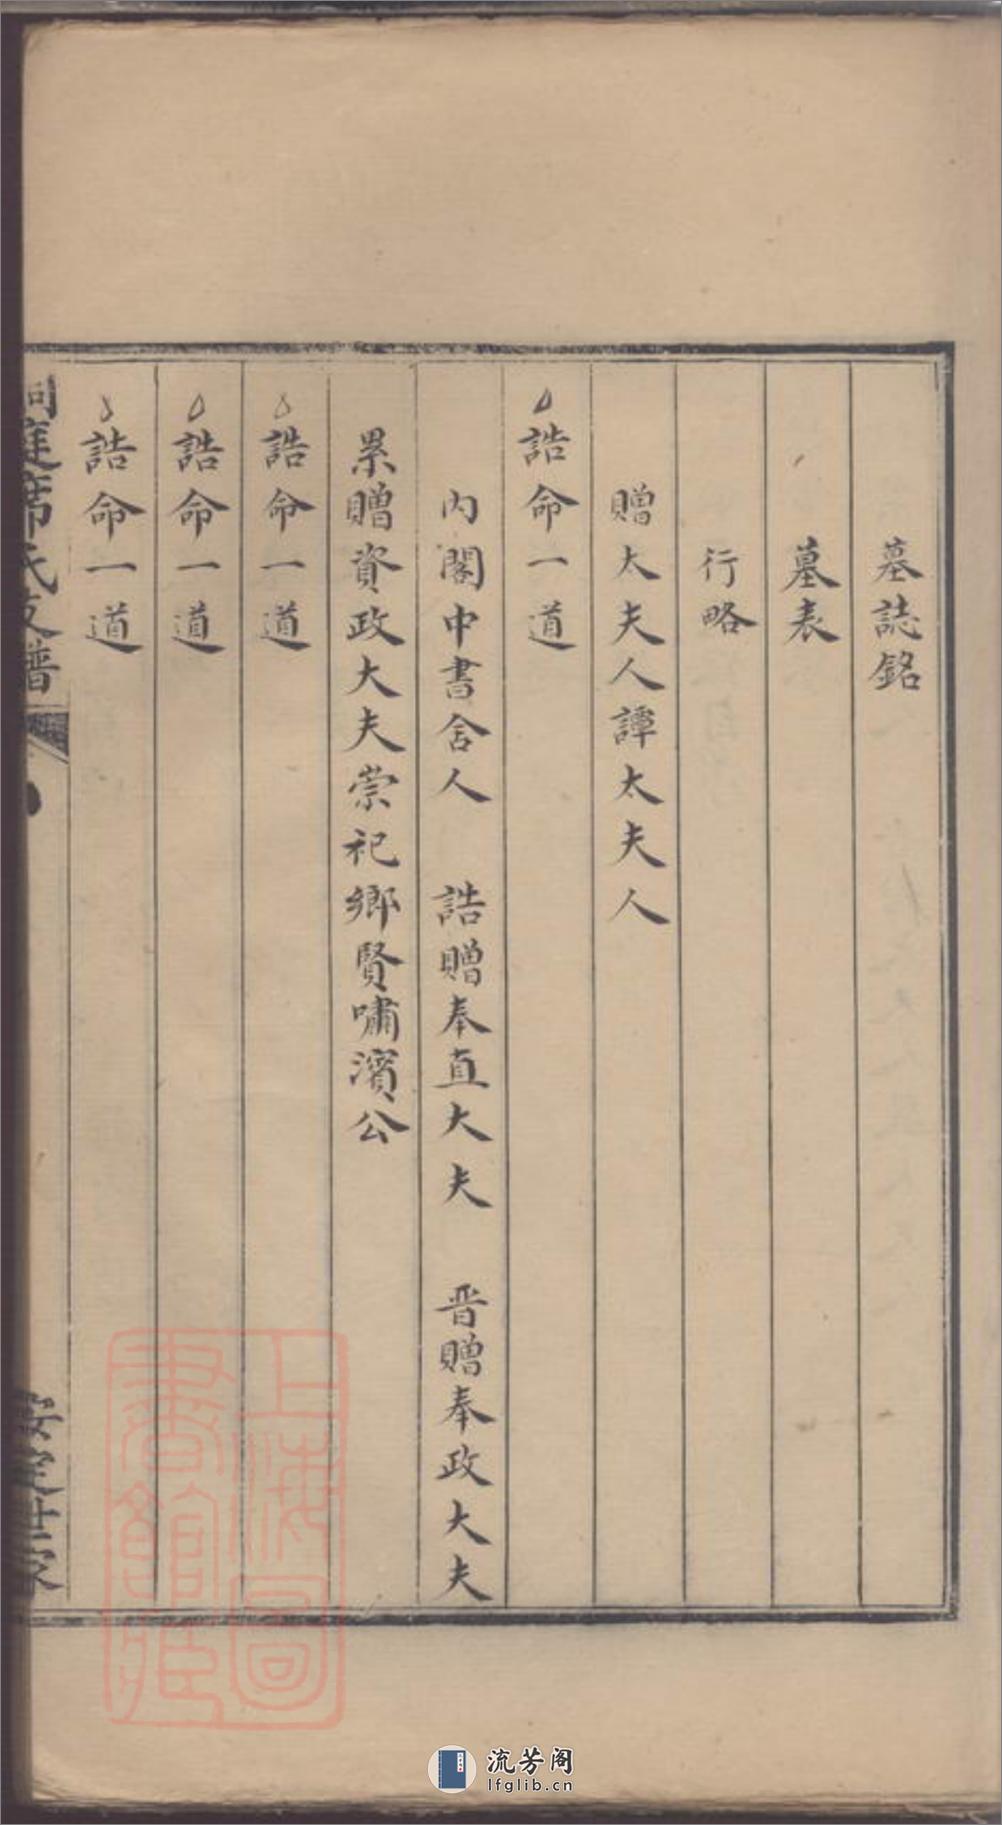 墓誌銘
墓表
行略
贈太夫人譚太夫人
誥命一道
內閣中書舍人 誥贈奉直大夫 晋贈奉政大夫
累贈資政大夫崇祀鄉賢嘯濱公
誥命一道
誥命一道
誥命一道
洞庭席氏支譜
安定世家
上海圖書館藏
流芳阁
lfglib.cn